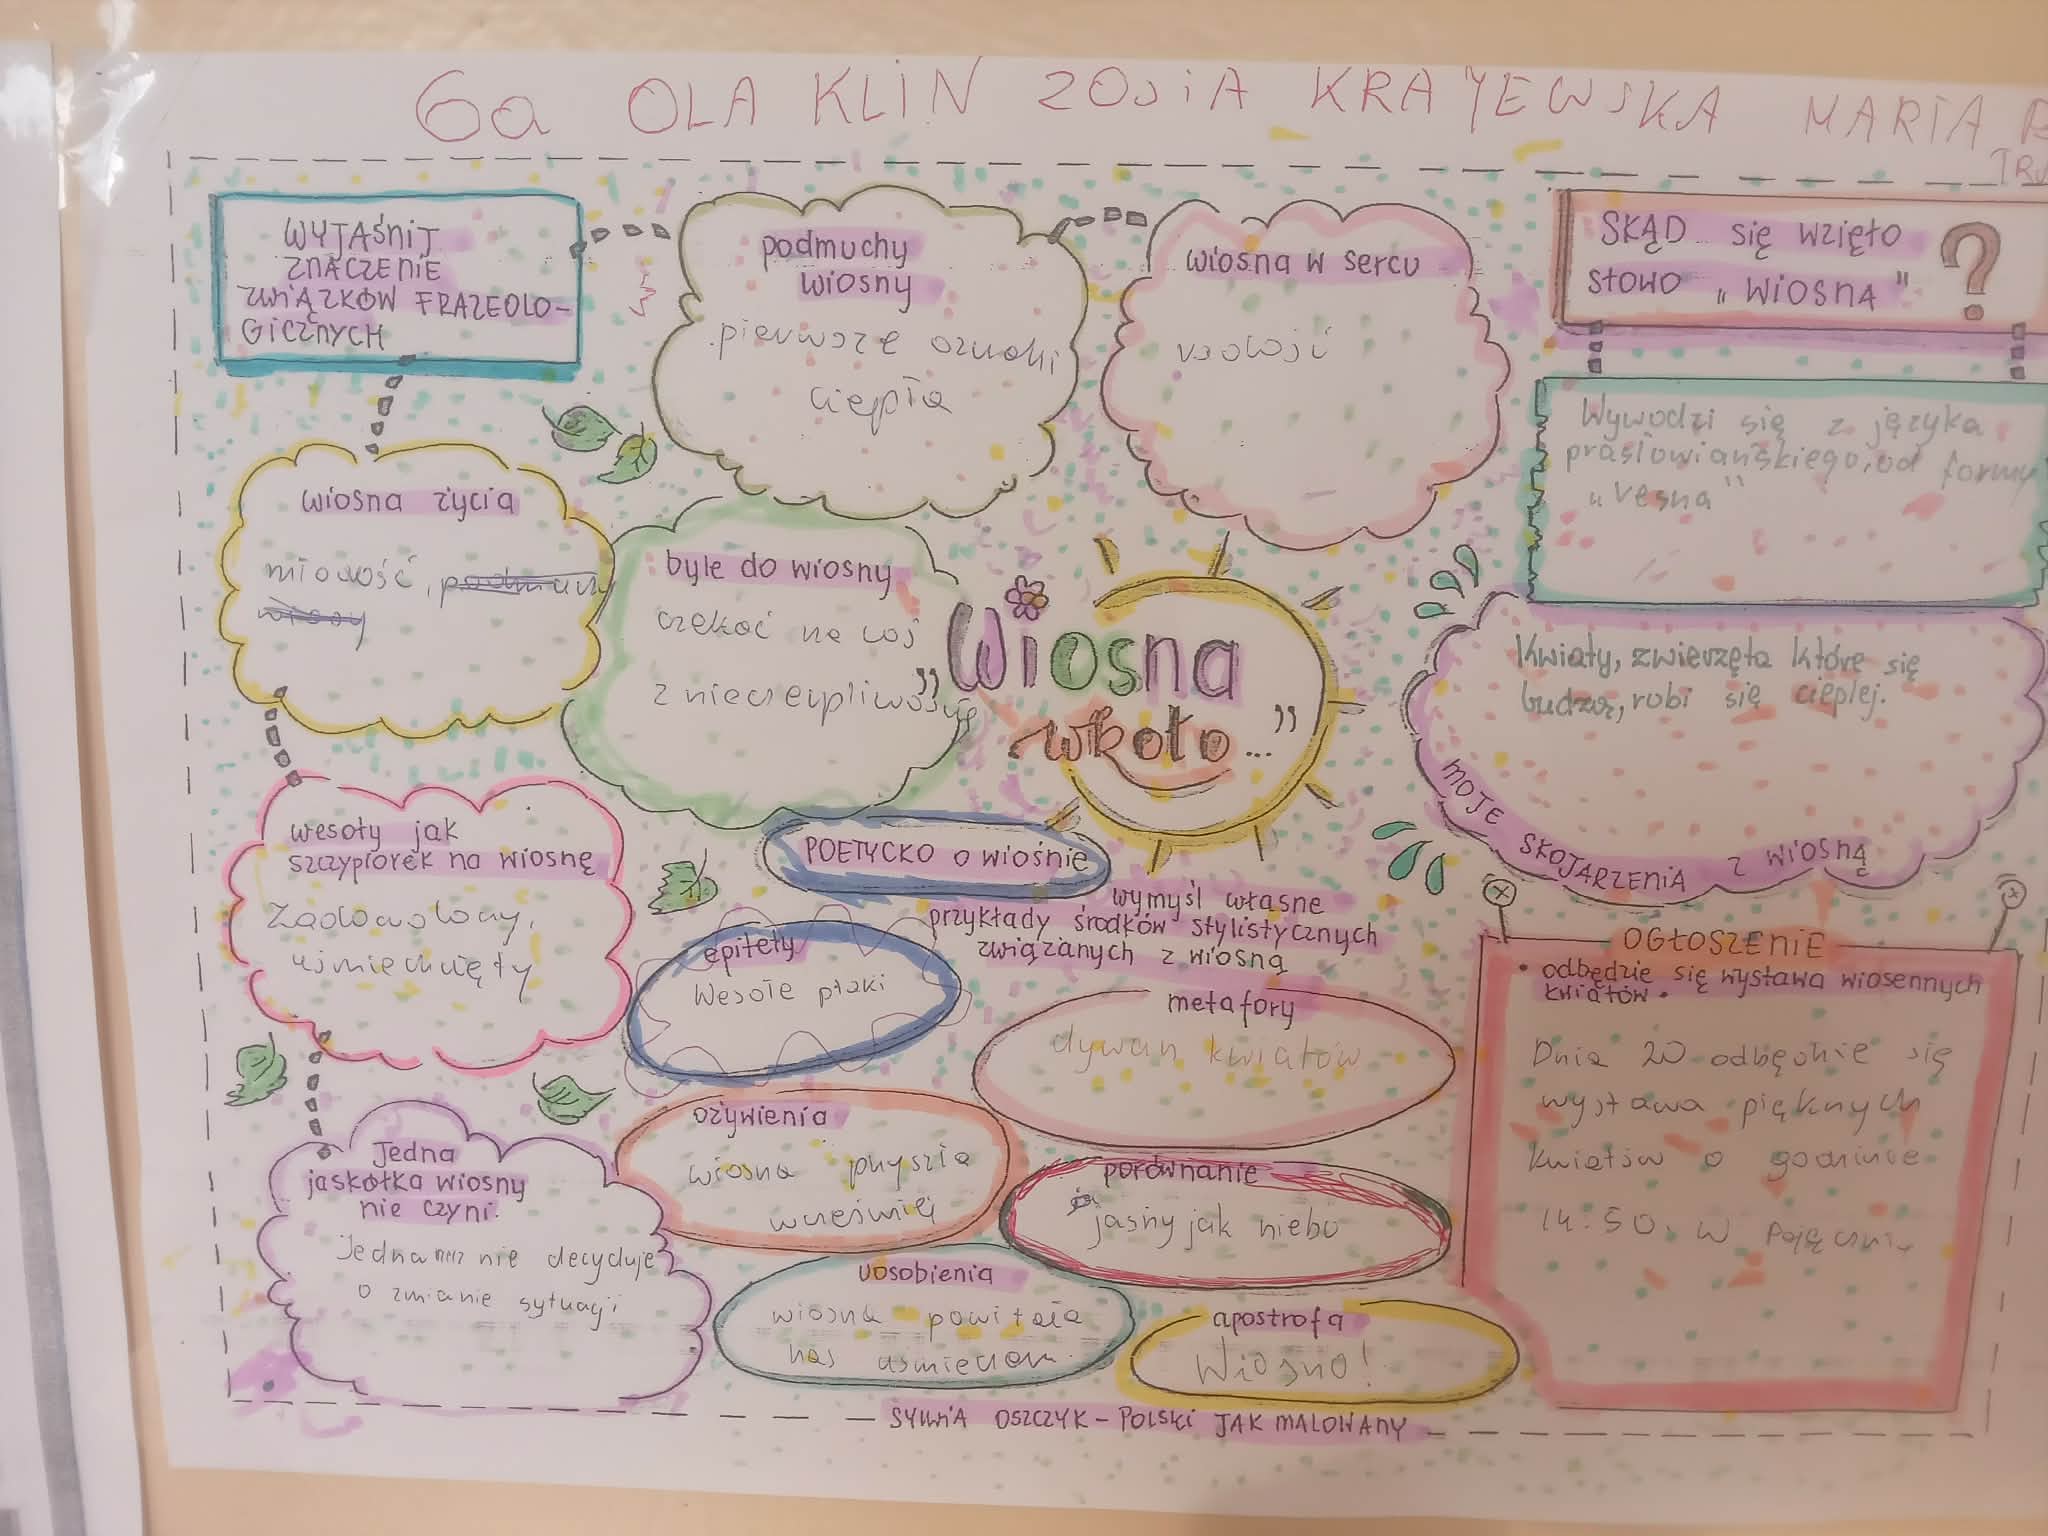 6a OLA KLIN ZOSIA KRAJEWSKA MARIA
WYJAŚNIJ
ZNACZENIE
ZWIĄZKÓW FRAZEOLO-
GICZNYCH
podmuchy
wiosny
pierwsze oznaki
ciepła
wiosna w sercu
radość
SKĄD się wzięło
słowo „wiosna" ?
Wywodzi się z języka
prasłowiańskiego, od formy
„vesna"
wiosna życia
młodość, podmuchy
wiosny
byle do wiosny
czekać na coś
z niecierpliwością
„Wiosna
wkoło..."
Kwiaty, zwierzęta które się
budzą, robi się cieplej.
MOJE SKOJARZENIA z wiosną
wesoły jak
szczypiorek na wiosnę
Zadowolony,
uśmiechnięty
POETYCKO o wiośnie
wymyśl własne
przykłady środków stylistycznych
związanych z wiosną
epitety
Wesołe ptaki
metafory
dywan kwiatów
ożywienia
wiosna przyszła
wcześniej
porównanie
jasny jak niebo
uosobienia
wiosna powitała
nas uśmiechem.
apostrofa
Wiosno!
Jedna
jaskółka wiosny
nie czyni.
Jedna rzecz nie decyduje
o zmianie sytuacji
OGŁOSZENIE
• odbędzie się wystawa wiosennych
kwiatów.
Dnia 20 odbędzie się
wystawa pięknych
kwiatów o godzinie
14:50. W Pajęcznie
SYLWIA OSZCZYK – POLSKI JAK MALOWANY